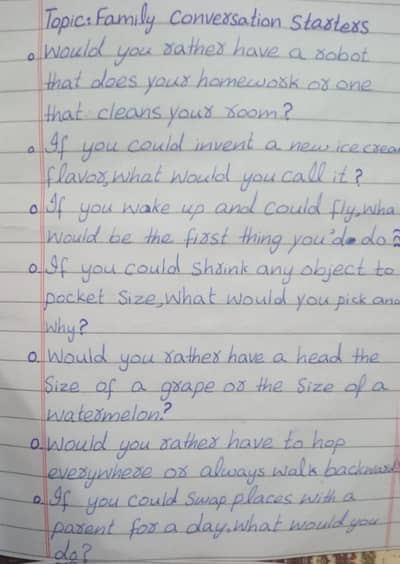 Topic: Family Conversation Starters
Would you rather have a robot
that does your homework or one
that cleans your room?
If you could invent a new ice crea
flavor, what would you call it?
If you wake up and could fly, wha
would be the first thing you'd do?
If you could shrink any object to
pocket size, what would you pick and
why?
Would you rather have a head the
size of a grape or the size of a
watermelon?
Would you rather have to hop
everywhere or always walk backward
If you could swap places with a
parent for a day, what would you
do?